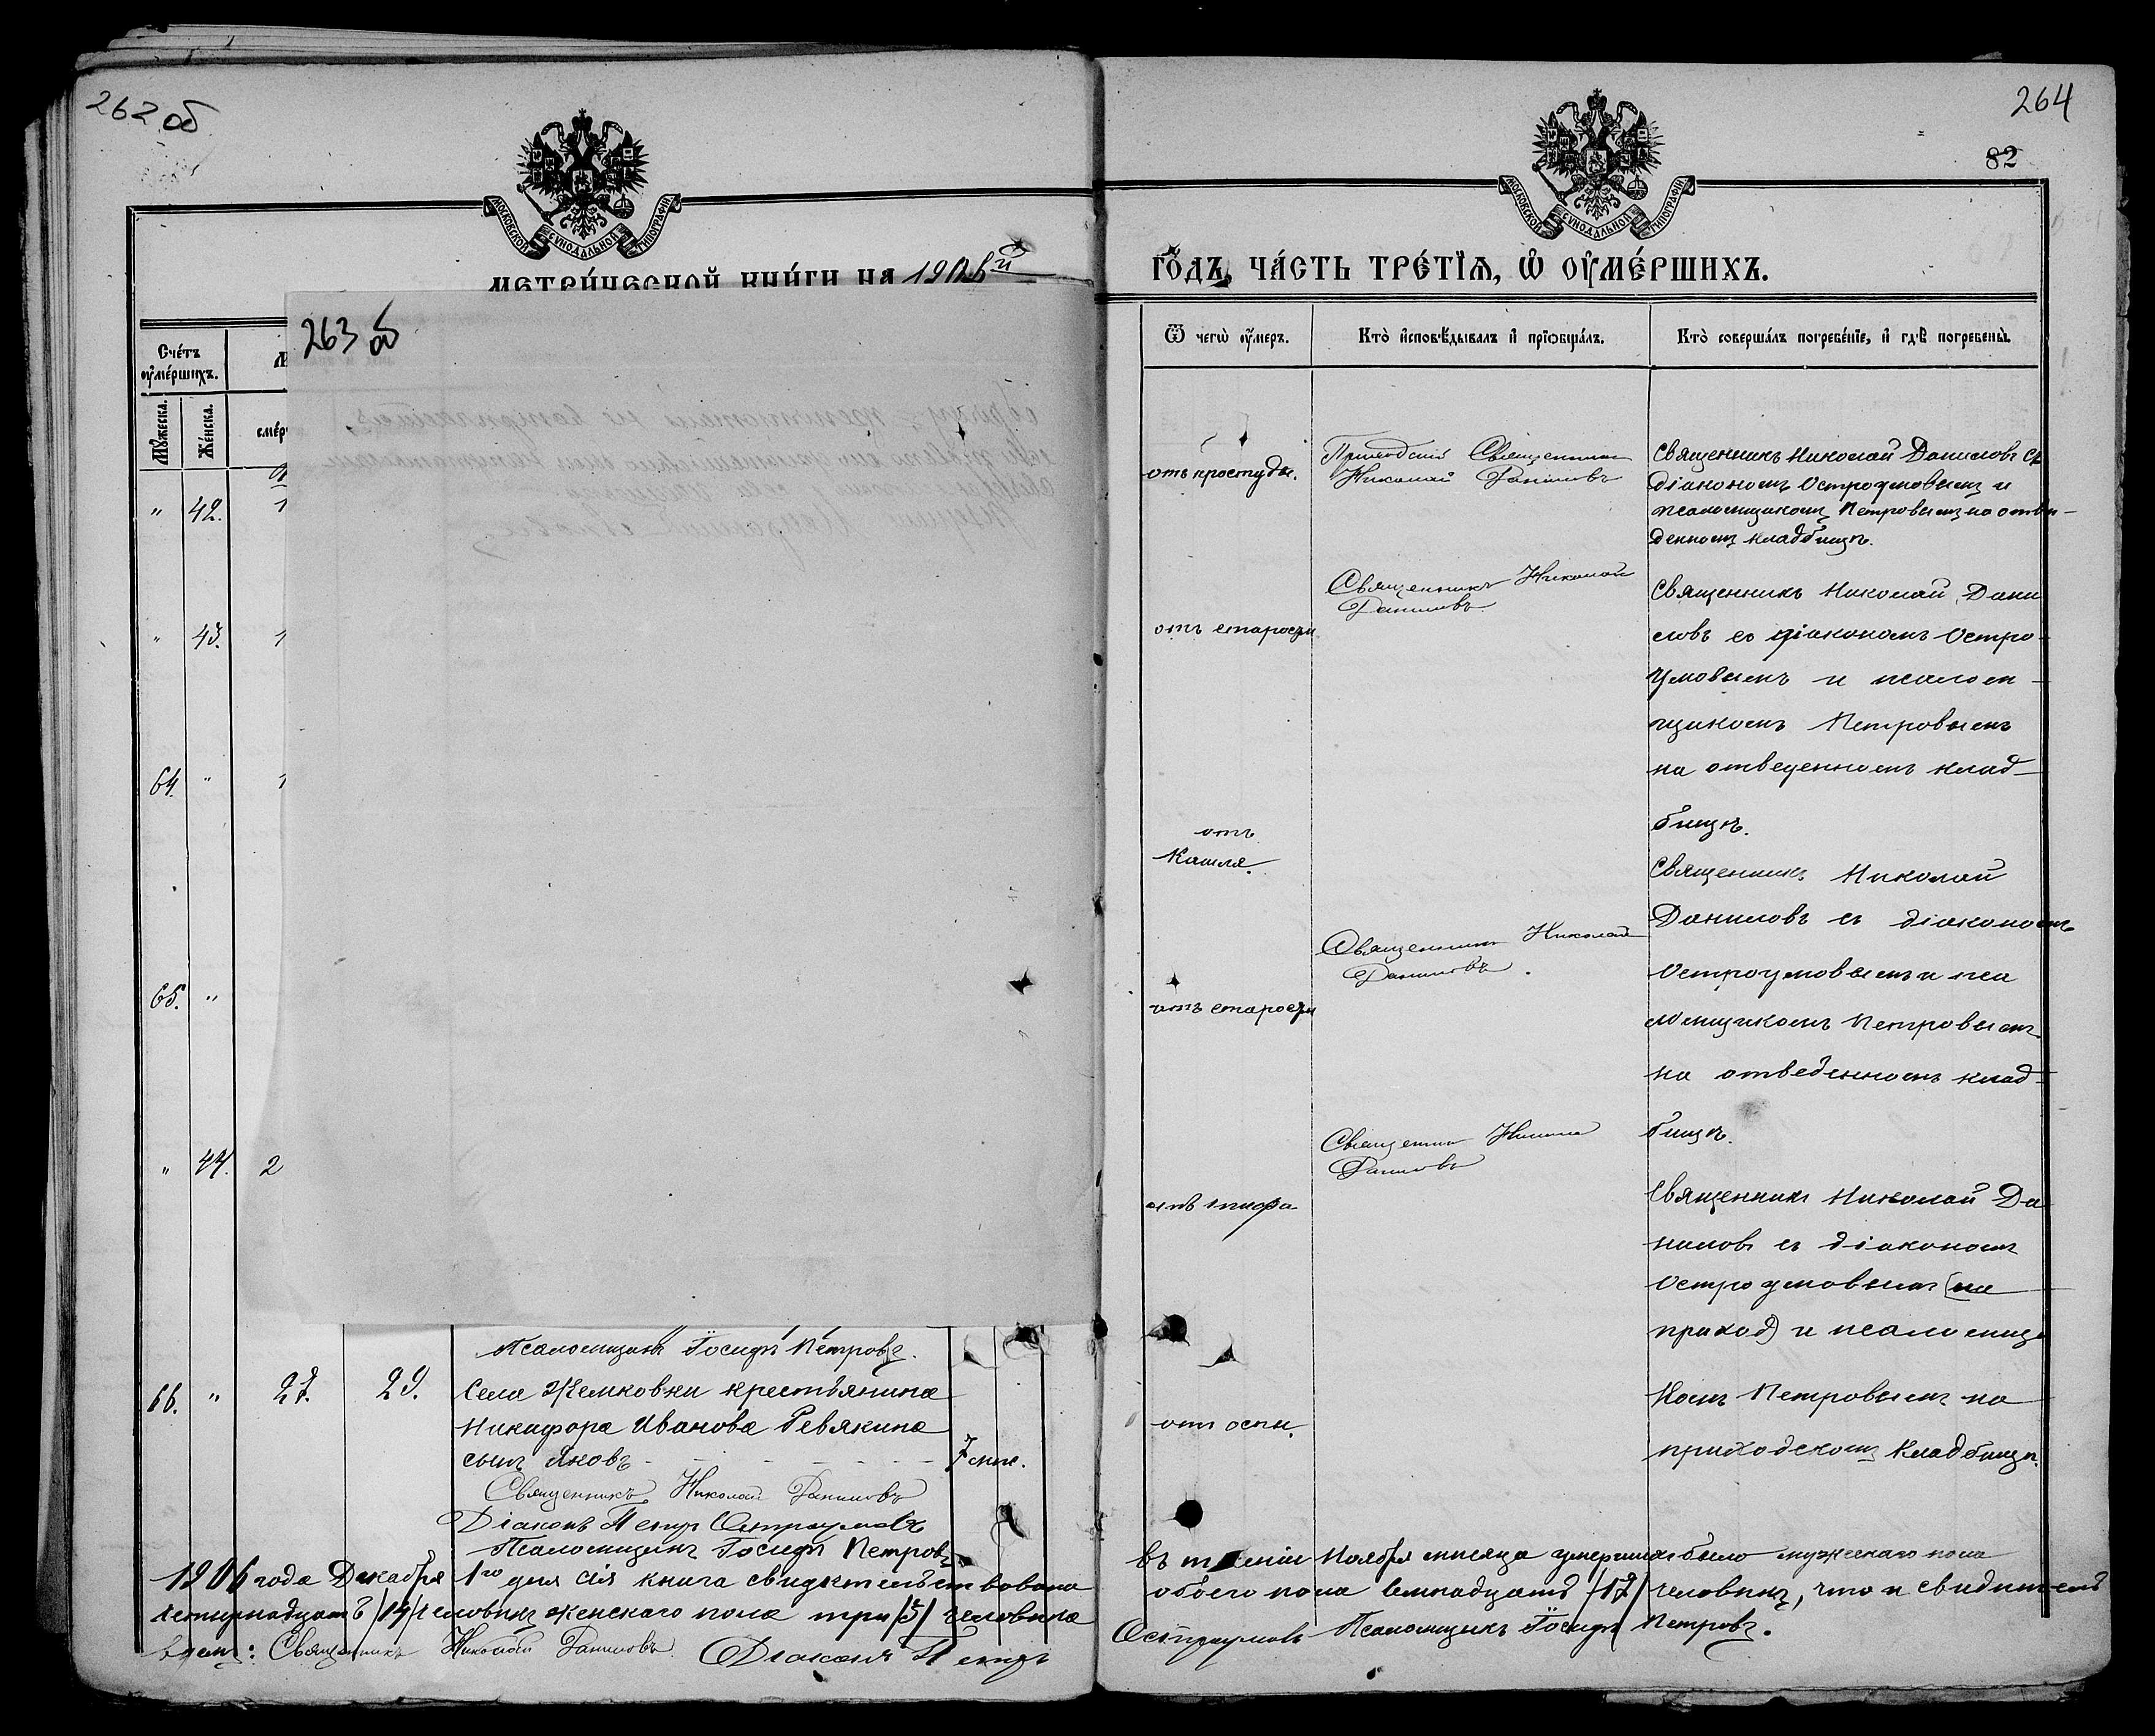 262 об
МОСКОВСКОЙ СѴНОДАЛЬНОЙ ТИПОГРАФІИ
МЕТРИ́ЧЕСКОЙ КНИ́ГИ НА 1906й
263 об
Сче́тъ
ᲂу҆ме́ршихъ.
Мꙋ́жеска.
Же́нска.
" 42.
" 43.
64. "
65. "
" 44. 2
Псаломщикъ Іосифъ Петровъ.
66. " 27. 29. Села Жемковки крестьянина
Никифора Иванова Ревякина
сынъ Яковъ - - - - - - 7 мѣс.
Священникъ Николай Даниловъ
Діаконъ Петръ Остроумовъ
Псаломщикъ Іосифъ Петровъ
1906 года Декабря 1го дня сія книга свидѣтельствована
четырнадцать /14/ человѣкъ женскаго пола три /3/ человѣка
вуемъ: Священникъ Николай Даниловъ. Діаконъ Петръ
264
82
МОСКОВСКОЙ СѴНОДАЛЬНОЙ ТИПОГРАФІИ
ГО́ДЪ, ЧА́СТЬ ТРЕ́ТІѦ, Ѡ҆ ОУ҆МЕ́РШИХЪ.
Ѿ чегѡ̀ ᲂу҆́меръ.
Кто̀ и҆сповѣ́дывалъ и҆ прїѡбща́лъ.
Кто̀ соверша́лъ погребе́нїе, и҆ гдѣ̀ погребены̀.
отъ простуды.
Приходскій Священникъ
Николай Даниловъ
Священникъ Николай Даниловъ съ
діакономъ Остроумовымъ и
псаломщикомъ Петровымъ на отве-
денномъ кладбищѣ.
отъ старости
Священникъ Николай
Даниловъ
Священникъ Николай Дани
ловъ съ діакономъ Остро-
умовымъ и псалом-
щикомъ Петровымъ
на отведенномъ клад-
бищѣ.
отъ
Кашля.
Священникъ Николай
Даниловъ съ діакономъ
Остроумовымъ и пса
ломщикомъ Петровымъ
на отведенномъ клад-
бищѣ.
отъ старости
Священникъ Николай
Даниловъ.
отъ тифа
Священникъ Николай
Даниловъ
Священникъ Николай Да
ниловъ съ діакономъ
Остроумовымъ (на
приход) и псаломщи
комъ Петровымъ на
приходскомъ кладбищѣ.
отъ оспы.
въ теченіи Ноября мѣсяца умершихъ было мужескаго пола
обоего пола семнадцать /17/ человѣкъ, что и свидѣтель
Остроумовъ Псаломщикъ Іосифъ Петровъ.